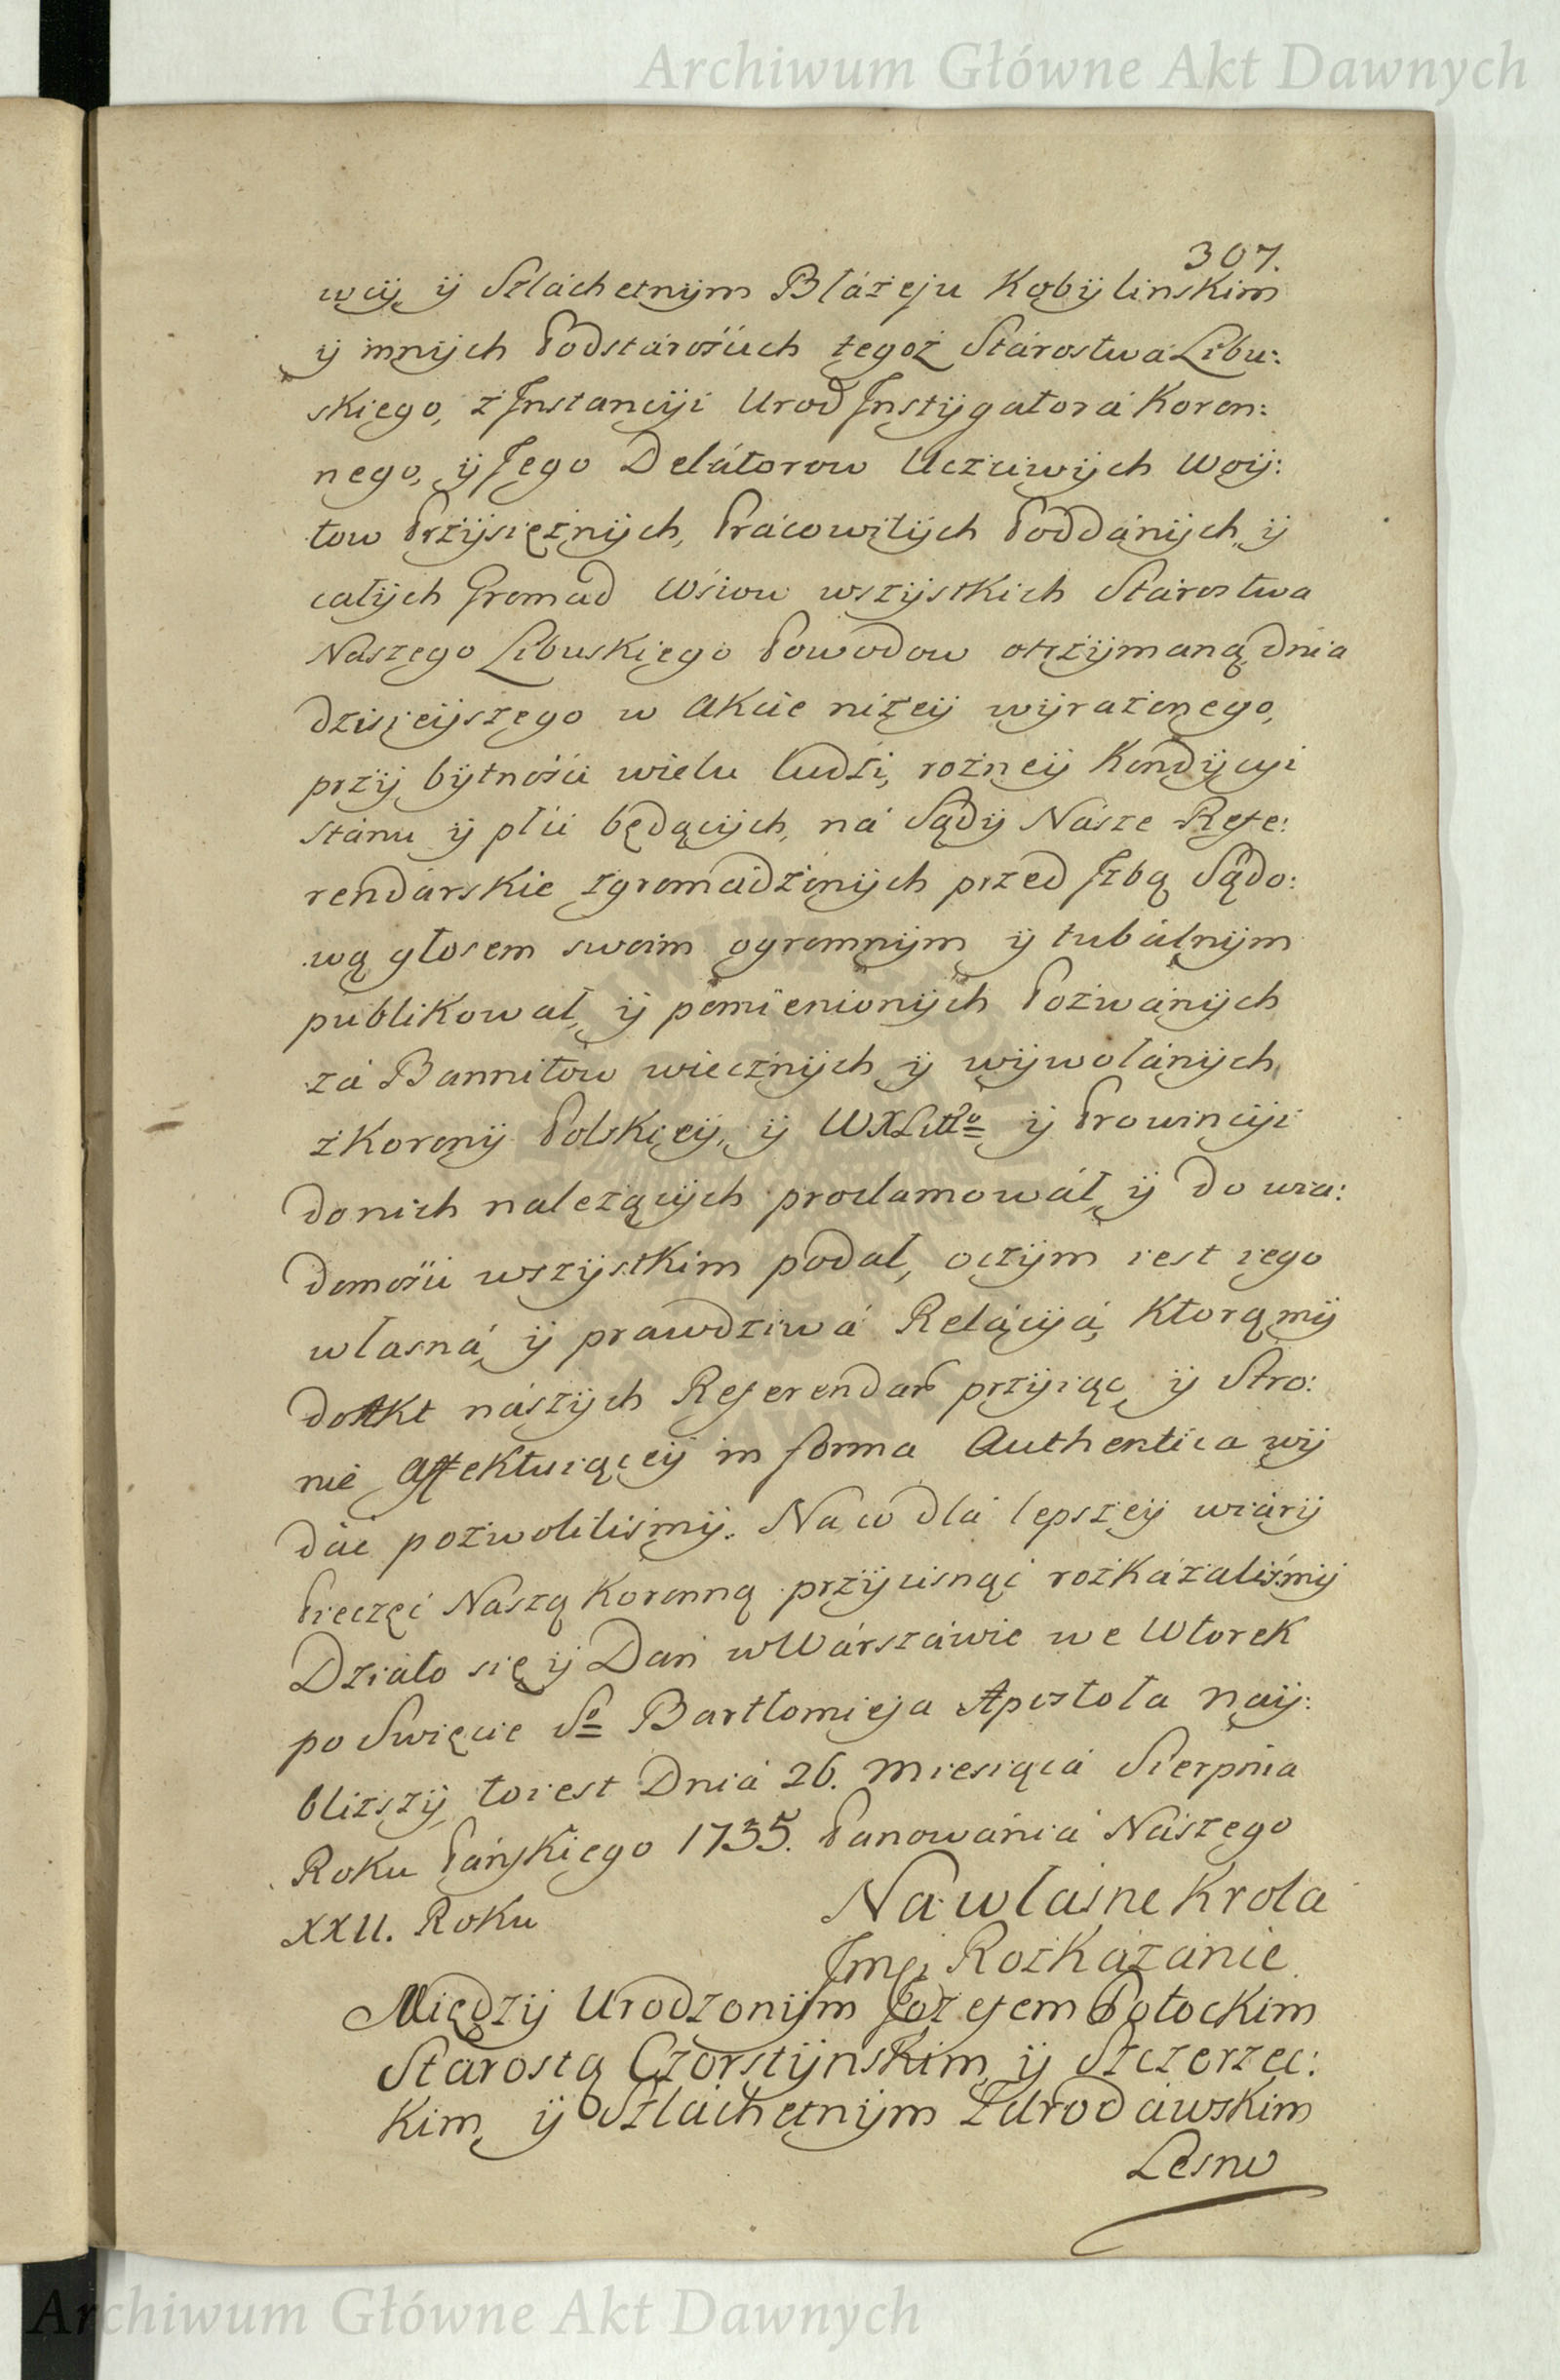 Archiwum Główne Akt Dawnych
307.
wcÿ, ÿ Szláchetnÿm Błáżeju Kobÿlinskim
ÿ innÿch Podstárośćich tegoż Stárostwá Libu:
skiego, z Instancÿi Urod Instÿgatorá Koron:
nego, ÿ Jego Delátorow Uczciwÿch Woÿ:
tow Przÿsiężnÿch, Prácowitÿch Poddánÿch, ÿ
całÿch Gromad Wśiow wszÿstkich Stárostwa
Nászego Libuskiego Powodow otrzÿmaną dnia
dzisieÿszego w Akcie niżeÿ wÿrażonego,
przÿ bÿtnośći wielu ludźi, rożneÿ Kondÿcyi
stánu ÿ płci będącÿch, ná Sądÿ Násze Refe:
rendárskie zgromádzonÿch przed Izbą Sądo:
wą głosem swoim ogromnÿm ÿ tubálnÿm
publikował, ÿ pomienionÿch Pozwánÿch
zá Bannitow wiecznÿch ÿ wÿwołánÿch
z Koronÿ Polskieÿ, ÿ WXLitto ÿ Prowincÿi
do nich należącÿch proclamowáł, ÿ do wia:
domośći wszÿstkim podał, oczÿm iest iego
własná ÿ prawdziwá Relácÿá, Ktorą mÿ
do Akt nászÿch Referendar przÿiąć, ÿ Stro:
nie affektuiąceÿ in forma Authentica wÿ
dáć pozwoliliśmÿ. Na co dlá lepszeÿ wiárÿ
Pieczęć Naszą Koronną przÿcisnąć rozkázaliśmÿ
Działo się ÿ Dan w Wárszáwie we Wtorek
po Swięcie So Bartłomieja Apostoła naÿ:
bliższÿ, to iest Dniá 26. Miesiącá Sierpnia
Roku Páńskiego 1735. Panowániá Nászego
XXII. Roku
Na własne Krola
Jmći Rozkázánie.
Międzÿ Urodzonÿm Jozefem Potockim
Starostą Czorstÿnskim ÿ Szczerzec:
kim, ÿ Szláchetnÿm Zdrodáwskim
Lesnw
Archiwum Główne Akt Dawnych